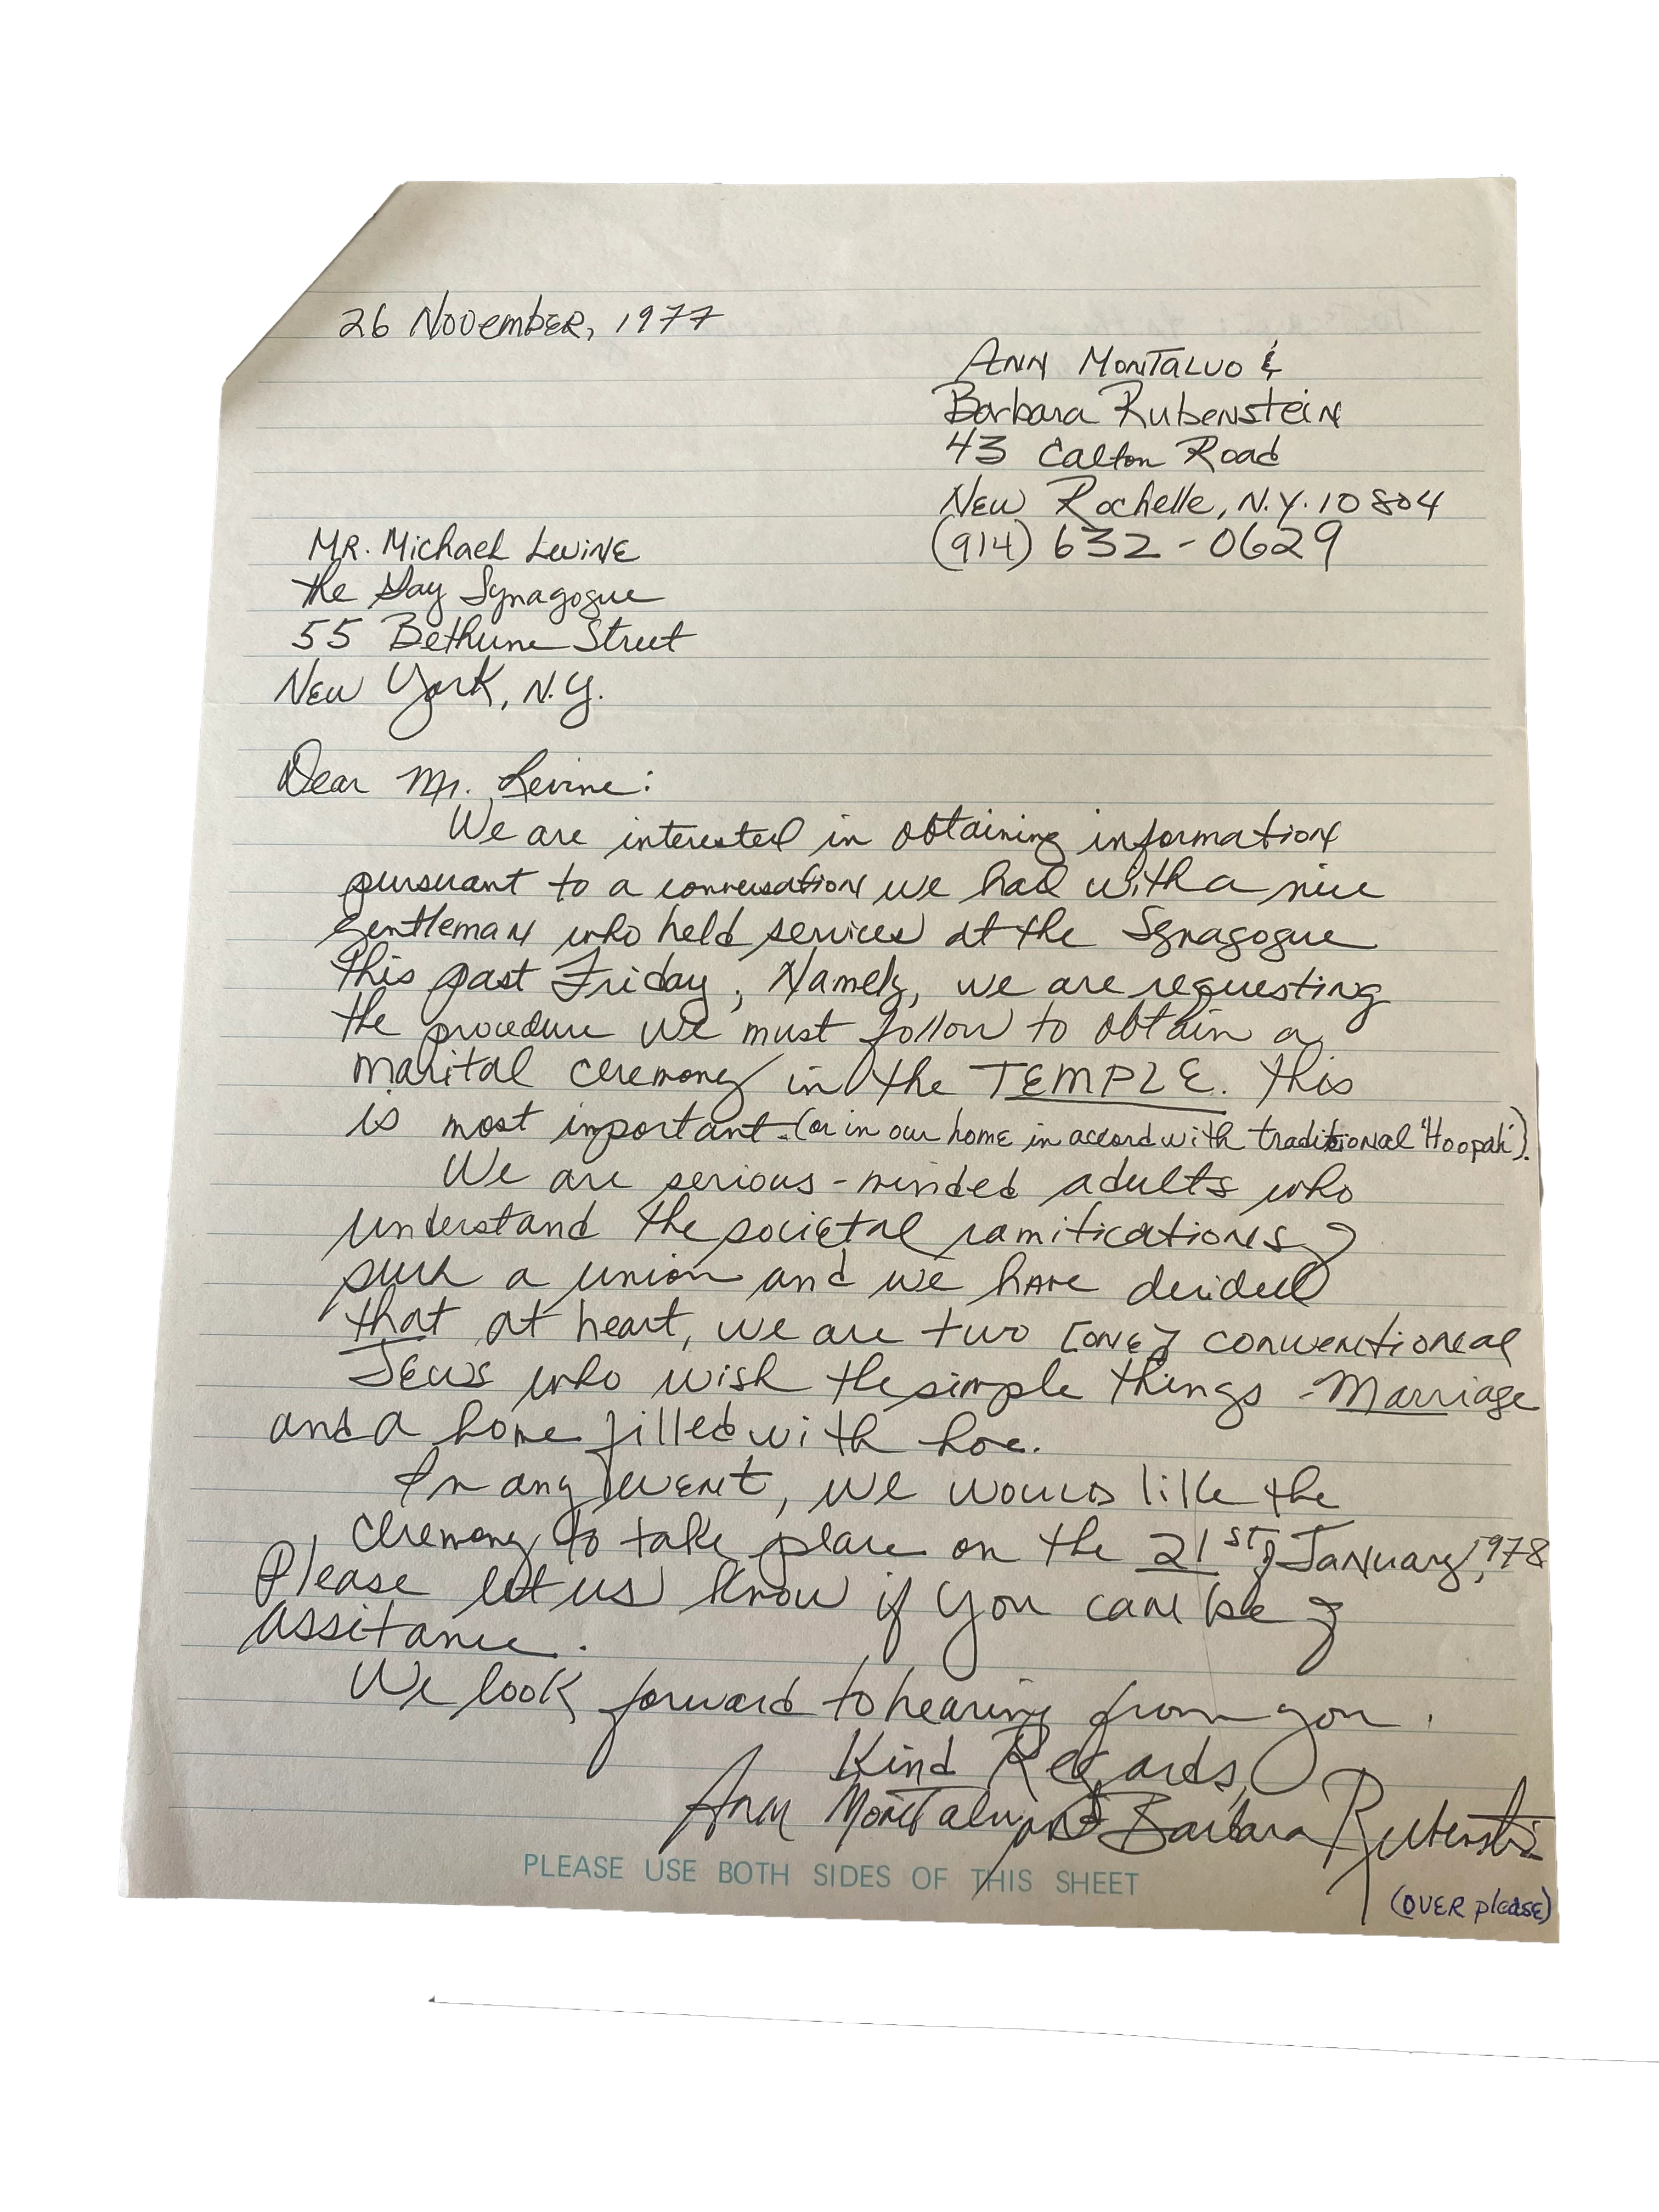 26 November, 1977
Ann Montalvo &
Barbara Rubenstein
43 Calton Road
New Rochelle, N.Y. 10804
(914) 632-0629
Mr. Michael Levine
the Gay Synagogue
55 Bethune Street
New York, N.Y.
Dear Mr. Levine:
We are interested in obtaining information
pursuant to a conversation we had with a nice
gentleman who held services at the Synagogue
this past Friday; Namely, we are requesting
the procedure we must follow to obtain a
marital ceremony in the TEMPLE. This
is most important. (or in our home in accord with traditional "Hoopah").
We are serious-minded adults who
understand the societal ramifications of
such a union and we have decided
that at heart, we are two [one] conventional
Jews who wish the simple things - Marriage
and a home filled with love.
In any event, we would like the
ceremony to take place on the 21st of January, 1978
Please let us know if you can be of
assitance.
We look forward to hearing from you.
Kind Regards,
Ann Montalvo and Barbara Rubenstein
PLEASE USE BOTH SIDES OF THIS SHEET
(OVER please)